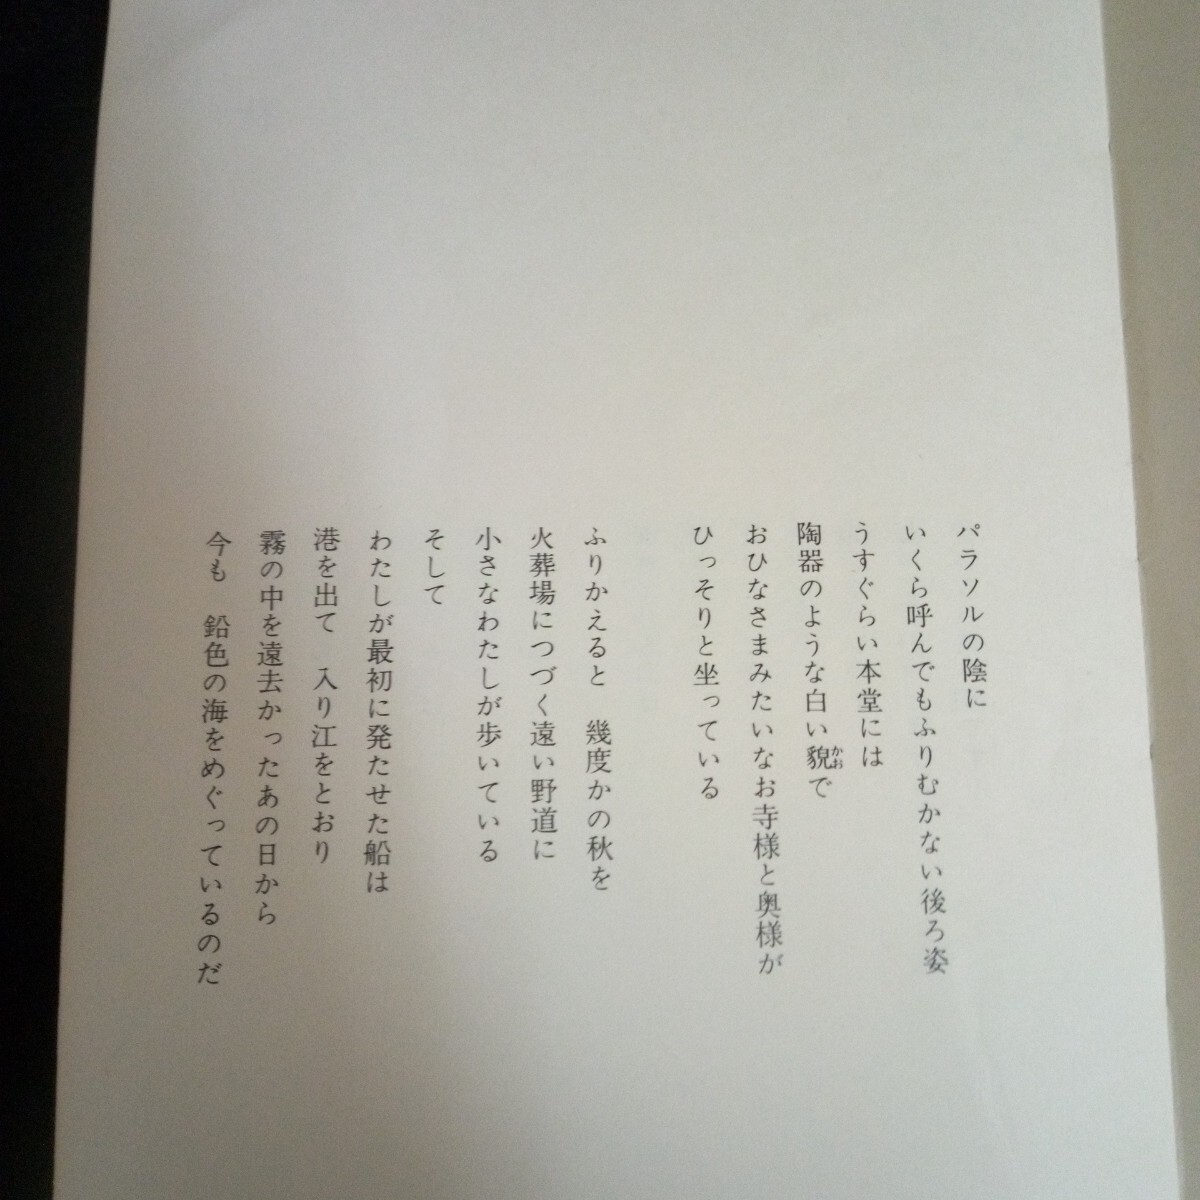 パラソルの陰に
いくら呼んでもふりむかない後ろ姿
うすぐらい本堂には
陶器のような白い貌かおで
おひなさまみたいなお寺様と奥様が
ひっそりと坐っている
ふりかえると　幾度かの秋を
火葬場につづく遠い野道に
小さなわたしが歩いている
そして
わたしが最初に発たせた船は
港を出て　入り江をとおり
霧の中を遠去かったあの日から
今も　鉛色の海をめぐっているのだ